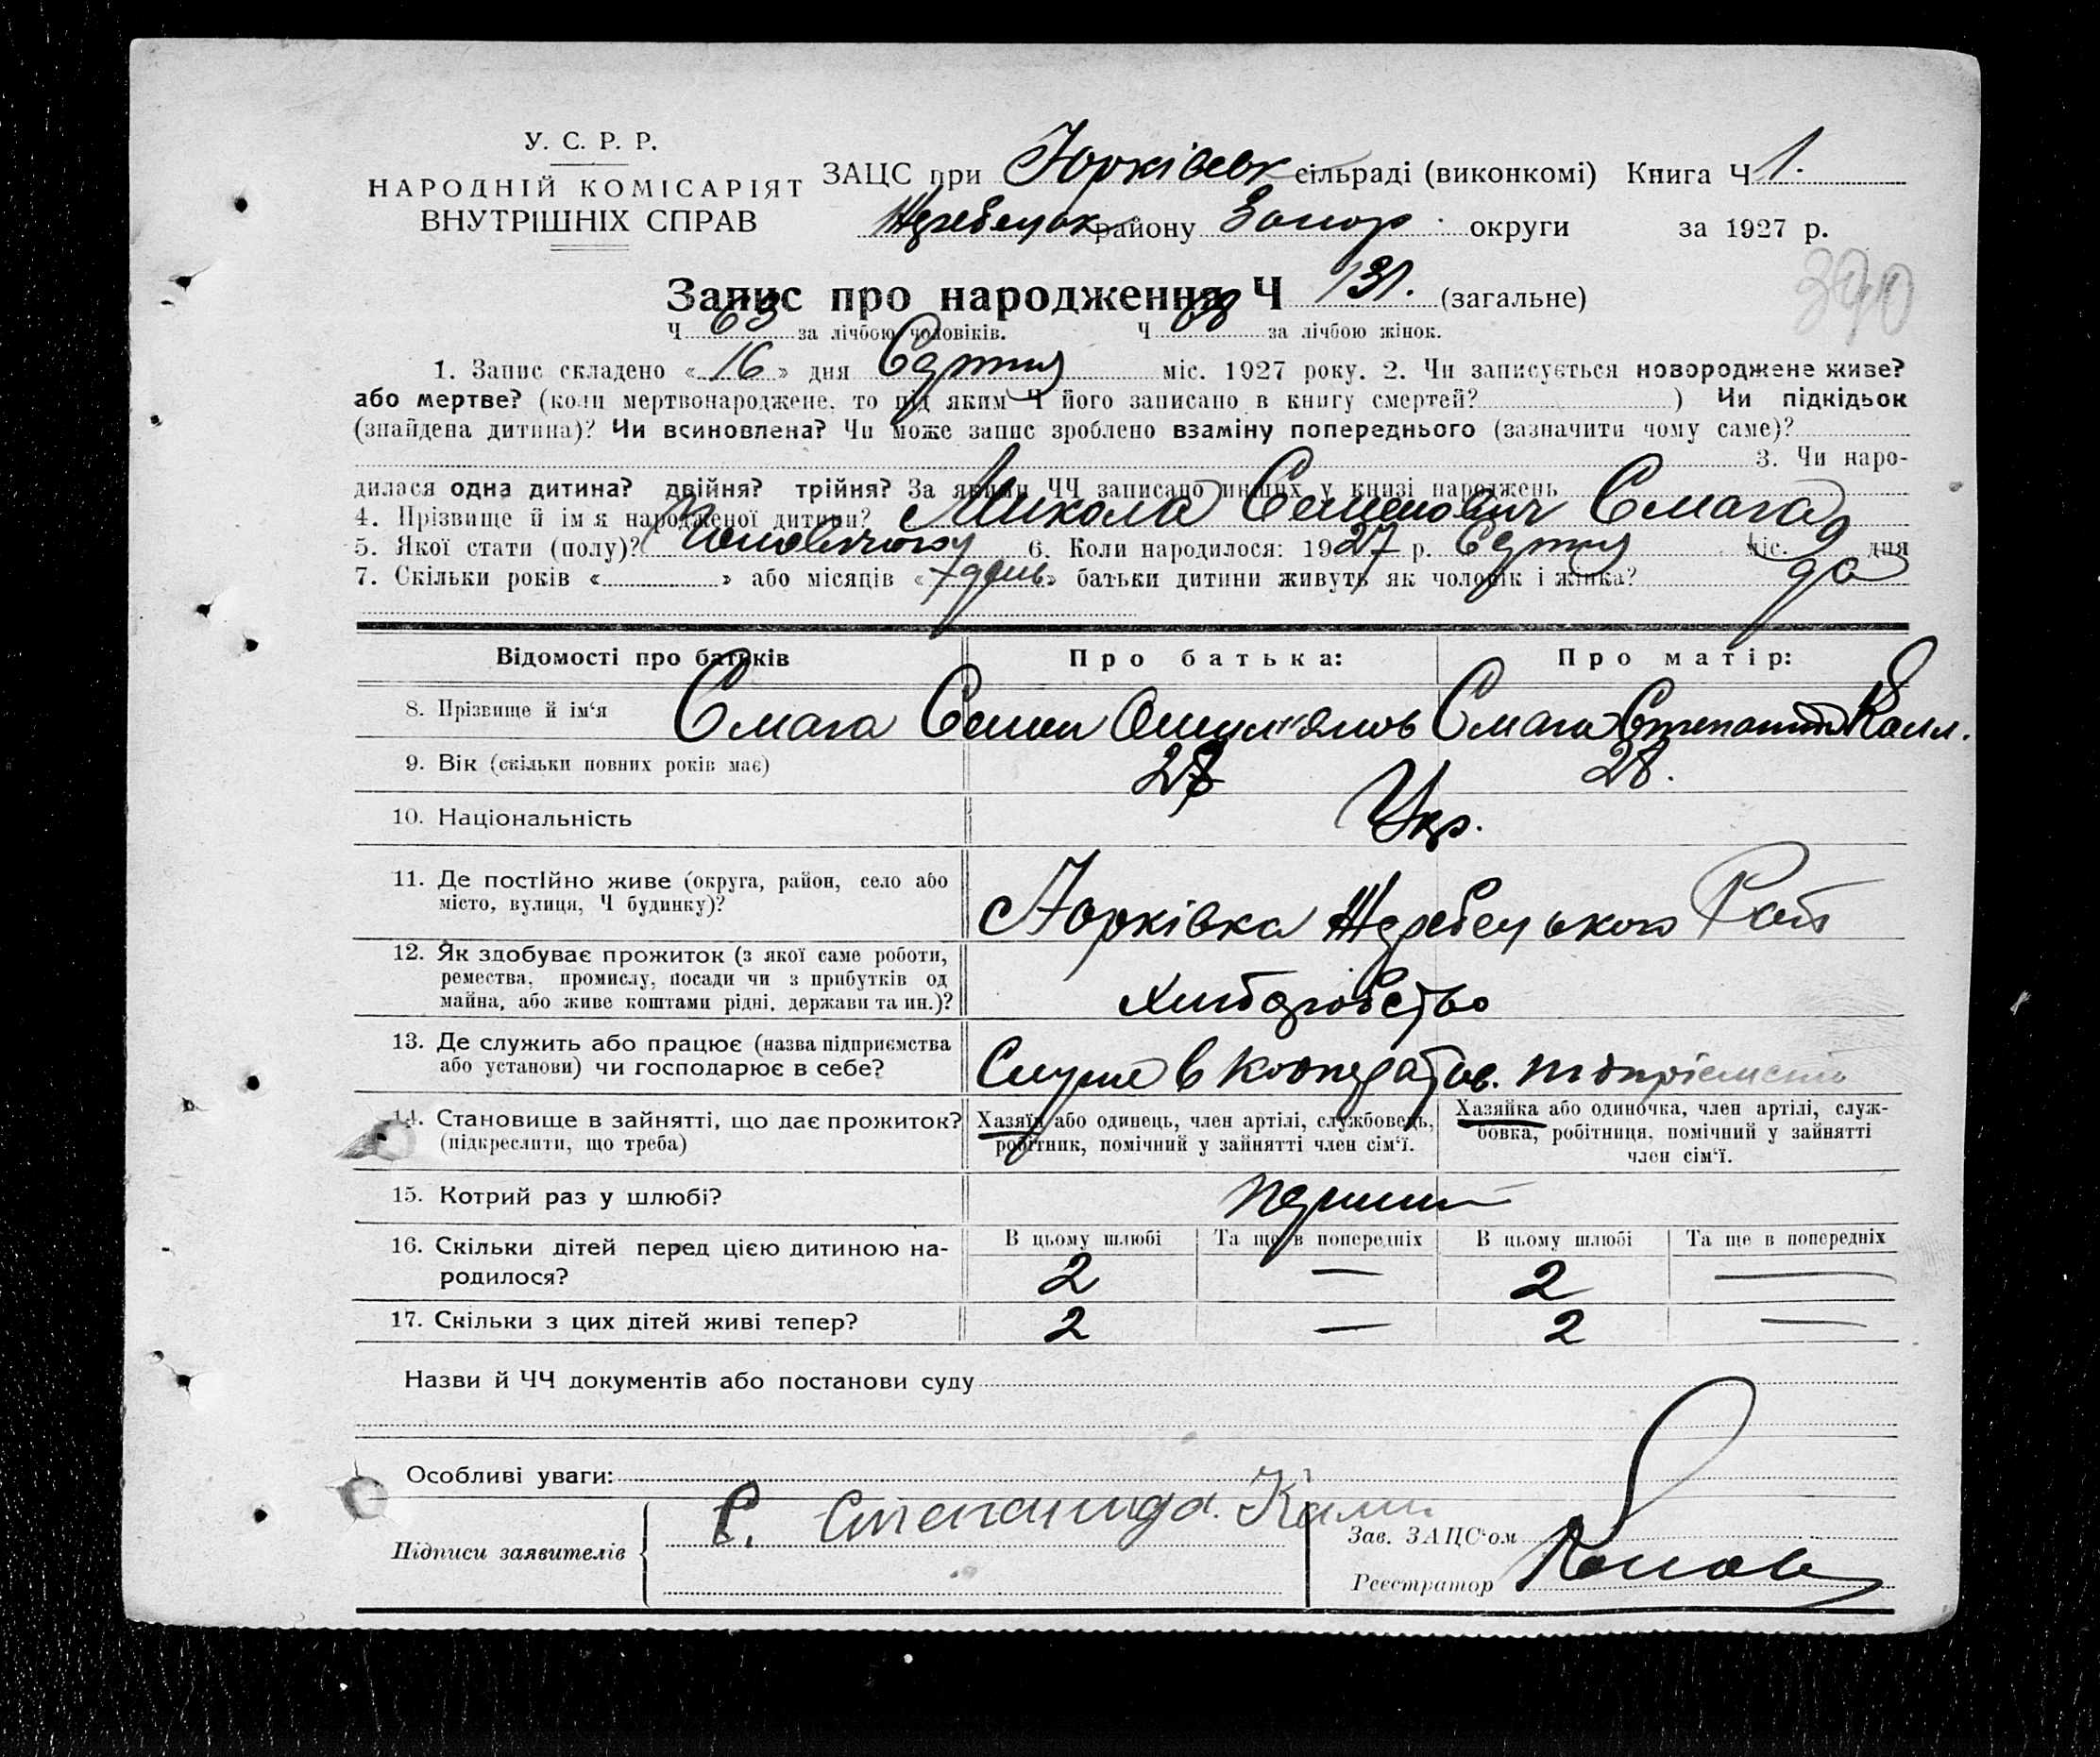 У. С. Р. Р.
НАРОДНІЙ КОМІСАРІЯТ
ВНУТРІШНІХ СПРАВ
ЗАЦС при Юрківськ сільраді (виконкомі) Книга Ч 1.
Жеребецьк району Запор. округи за 1927 р.
390
Запис про народження Ч 131. (загальне)
Ч 63 за лічбою чоловіків. Ч 68 за лічбою жінок.
1. Запис складено « 16 » дня Серпня міс. 1927 року. 2. Чи записується новороджене живе?
або мертве? (коли мертвонароджене, то під яким Ч його записано в книгу смертей? ) Чи підкідьок
(знайдена дитина)? Чи всиновлена? Чи може запис зроблено взаміну попереднього (зазначити чому саме)?
3. Чи наро-
дилася одна дитина? двійня? трійня? За якими ЧЧ записано инших у книзі народжень
4. Прізвище й ім'я народженої дитини? Микола Семенович Смага
5. Якої стати (полу)? 6. Коли народилося: 1927 р. Серпня міс. 9 дня
7. Скільки років « » або місяців « » батьки дитини живуть як чоловік і жінка? да
Відомості про батьків Про батька: Про матір:
8. Прізвище й ім'я Смага Семен Смага Степанида Калл.
9. Вік (скільки повних років має) 28.
10. Національність Укр.
11. Де постійно живе (округа, район, село або
місто, вулиця, Ч будинку)?
Юрківка Жеребецького Рай
12. Як здобуває прожиток (з якої саме роботи,
ремества, промислу, посади чи з прибутків од
майна, або живе коштами рідні, держави та ин.)?
хліборобство
13. Де служить або працює (назва підприємства
або установи) чи господарює в себе?
Служе в кооператив. підприємст
14. Становище в зайнятті, що дає прожиток?
(підкреслити, що треба)
Хазяїн або одинець, член артілі, службовець,
робітник, помічний у зайнятті член сім'ї.
Хазяйка або одиночка, член артілі, служ-
бовка, робітниця, помічний у зайнятті
член сім'ї.
15. Котрий раз у шлюбі? перший
16. Скільки дітей перед цією дитиною на-
родилося?
В цьому шлюбі Та ще в попередніх В цьому шлюбі Та ще в попередніх
2 — 2 —
17. Скільки з цих дітей живі тепер? 2 — 2 —
Назви й ЧЧ документів або постанови суду
Особливі уваги:
Підписи заявителів С. Степанида
Зав. ЗАЦС'ом
Реєстратор